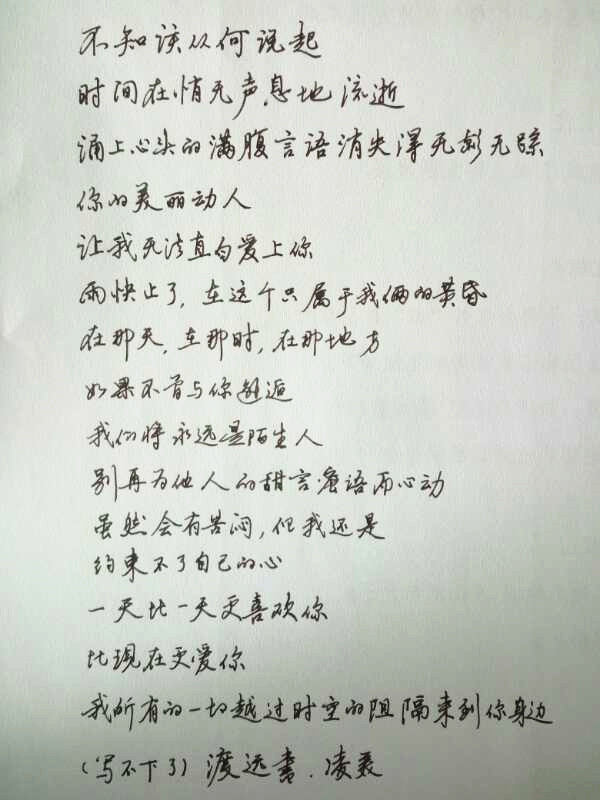 不知该从何说起
时间在悄无声息地流逝
涌上心头的满腹言语消失得无影无踪
你的美丽动人
让我无法直白爱上你
雨快止了，在这个只属于我俩的黄昏
在那天，在那时，在那地方
如果不曾与你邂逅
我们将永远是陌生人
别再为他人的甜言蜜语而心动
虽然会有苦闷，但我还是
约束不了自己的心
一天比一天更喜欢你
比现在更爱你
我所有的一切越过时空的阻隔来到你身边
（写不下了）渡远书．凌轰